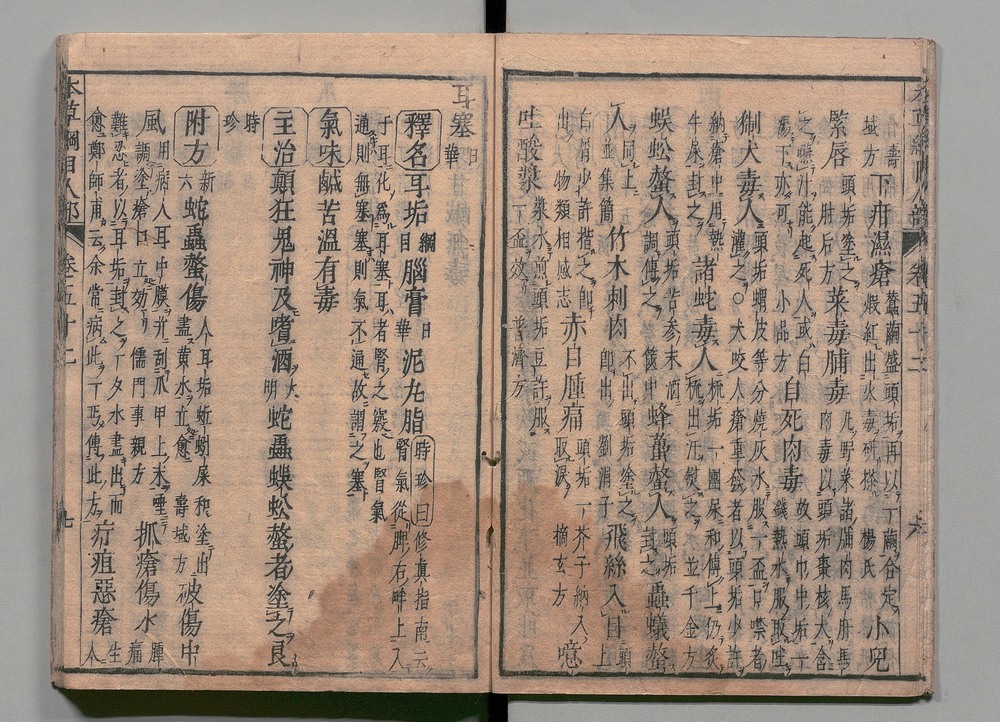 域方下疳濕瘡蠶繭盛頭垢再以一繭合定煅紅出火毒研搽楊氏小兒
緊唇頭垢塗之肘后方菜毒脯毒凡野菜諸脯肉馬肝馬肉毒以頭垢棗核大含
之嚥汁能起死人或白湯下亦可小品方自死肉毒故頭巾中垢一錢熱水服取吐
猘犬毒人頭垢猬皮等分燒灰水服一盃口噤者灌之○犬咬人瘡重發者以頭垢少許
納瘡中用熱牛屎封之諸蛇毒人梳垢一團尿和傅上仍炙梳出汗熨之並千金方
蜈蚣螫人頭垢苦參末酒調傅之篋中蜂蠆螫人頭垢封之蟲蟻螫
人同上並集簡竹木刺肉不出頭垢塗之即出劉涓子飛絲入目頭上
白屑少許揩之即出物類相感志赤目腫痛頭垢一芥子納入取淚摘玄方噫
吐酸漿漿水煎頭垢豆許服一盃效普濟方
耳塞日華
釋名耳垢綱目腦膏日華泥丸脂時珍曰修真指南云腎氣從脾右畔上入
于耳化為耳塞耳者腎之竅也腎氣通則無塞塞則氣不通故謂之塞
氣味鹹苦溫有毒
主治顛狂鬼神及嗜酒大明蛇蟲蜈蚣螫者塗之良
時珍
附方新六蛇蟲螫傷人耳垢蚯蚓屎和塗出盡黃水立愈壽域方破傷中
風用病人耳中膜并刮爪甲上末唾調塗瘡口立效儒門事親方抓瘡傷水腫痛
難忍者以耳垢封之一夕水盡出而愈鄭師甫云余常病此一丐傳此方疔疽惡瘡生人
本草綱目人部
卷五十二
七